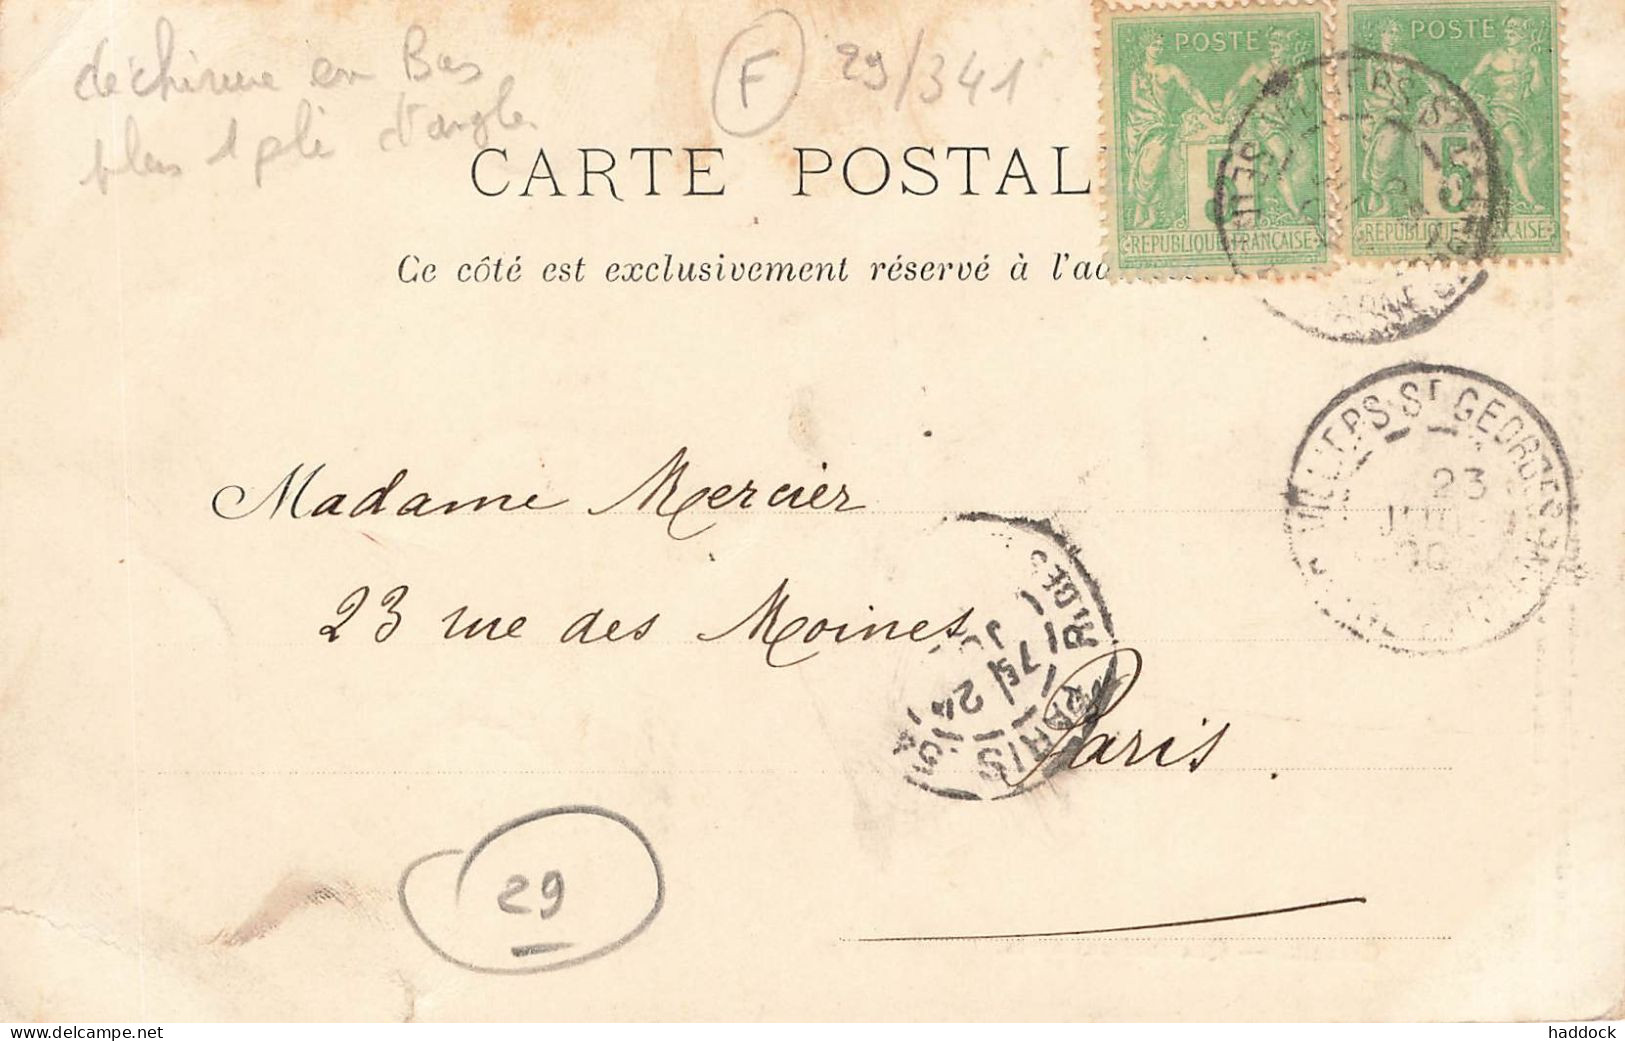 déchirure en Bas
plus 1 pli d'angle
F
29/341
CARTE POSTAL
Ce côté est exclusivement réservé à l'ad
POSTE
5
REPUBLIQUE FRANÇAISE
POSTE
5
REPUBLIQUE FRANÇAISE
VILLIERS ST
VILLIERS-ST GEORGES
23
Madame Mercier
23 rue des Moines
Paris.
PARIS
24
29
www.delcampe.net
haddock